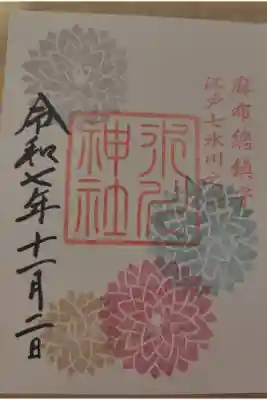 麻布總鎮守
江戸七氷川
氷川
神社
令和七年十一月二日